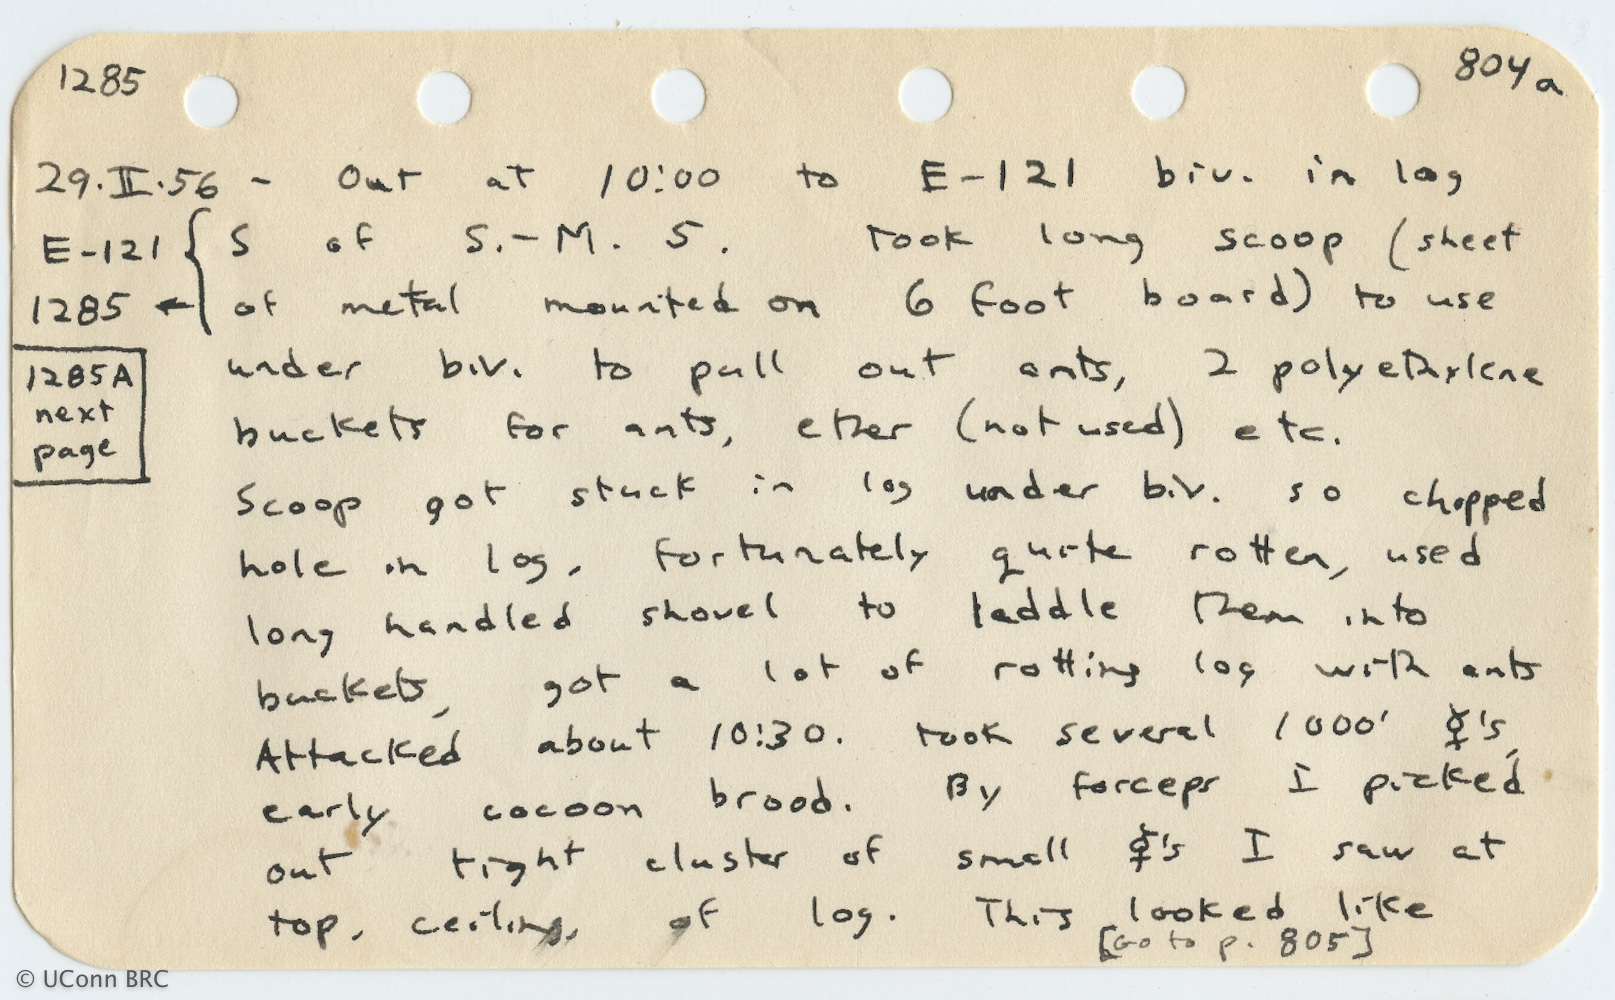 1285
804a
29.II.56 - Out at 10:00 to E-121 biv. in log
E-121 { S of S.-M. 5. Took long scoop (sheet
1285 ← of metal mounted on 6 foot board) to use
1285A
next
page
under biv. to pull out ants, 2 polyethylene
buckets for ants, ether (not used) etc.
Scoop got stuck in log under biv. so chopped
hole in log, fortunately quite rotten, used
long handled shovel to laddle them into
buckets, got a lot of rotting log with ants
Attacked about 10:30. Took several 1000' ☿'s,
early cocoon brood. By forceps I picked
out tight cluster of small ☿'s I saw at
top, ceiling, of log. This looked like
[Go to p. 805]
© UConn BRC